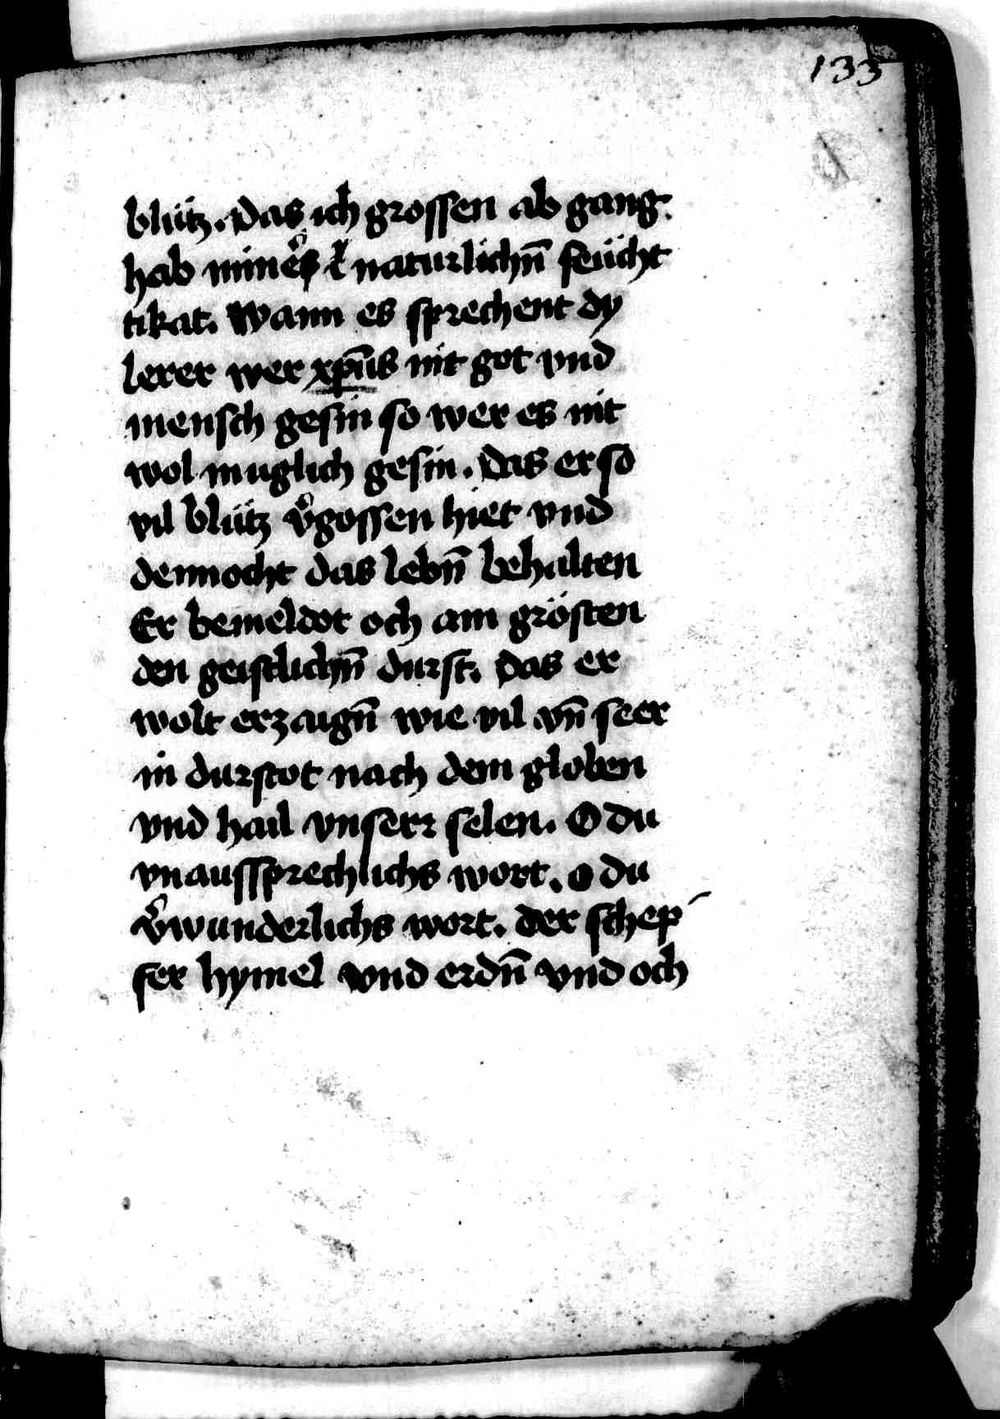 133
blütz. Das ich grossen ab gang
hab mines naturlichn̄ feücht
tikat. Wann es sprechent dy
lerer wer xp̄us nit got vnd
mensch gesin so wer es nit
wol muglich gesin. Das er so
vil blütz v̾gossen hiet vnd
dennocht das lebn̄ behalten
Er bemeldot och am grösten
den geistlichn̄ durst. Das er
wolt erzaugn̄ wie vil vn̄ seer
in durstot nach dem globen
vnd hail vnserr selen. O du
vnaussprechlichs wort. o du
v̾wunderlichs wort. der schep
fer hymel vnd erdn̄ vnd och